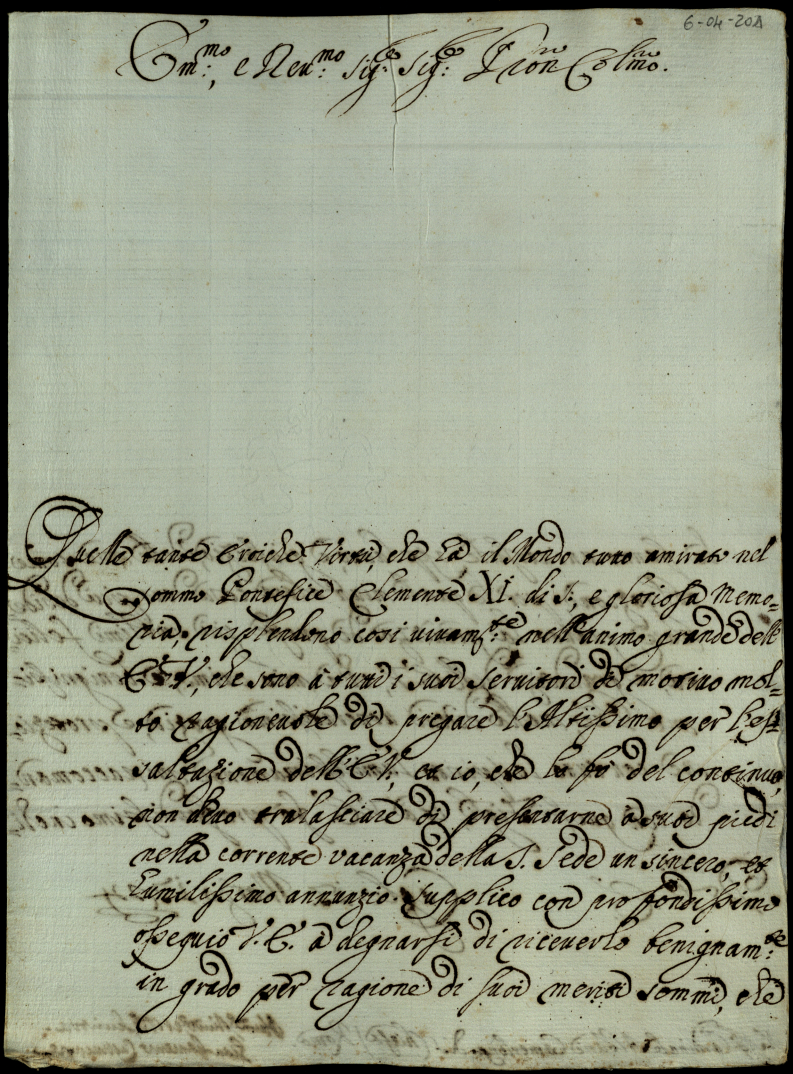 6-04-201
Em:mo, e Reu:mo Sig:re Sig:re Pron Colmo.
Quelle tante Eroiche Vertù, che hà il Mondo tutto amirato nel
Sommo Pontefice Clemente XI. di S:, e gloriosa Memo-
ria, risplendono così viuam:te nell'animo grande dell'
E. V., che sono à tutti i suoi Seruitori di motiuo mol-
to ragioneuole di pregare l'Altissimo per l'es-
saltazione dell'E. V., et io, che lo fò del continuo,
non deuo tralasciare di presentarne à suoi piedi
nella corrente vacanza della S. Sede un sincero, et
humilissimo annunzio. Supplico con profondissimo
ossequio V. E. à degnarsi di riceuerlo benignam:te
in grado per ragione di suoi meriti sommi, che